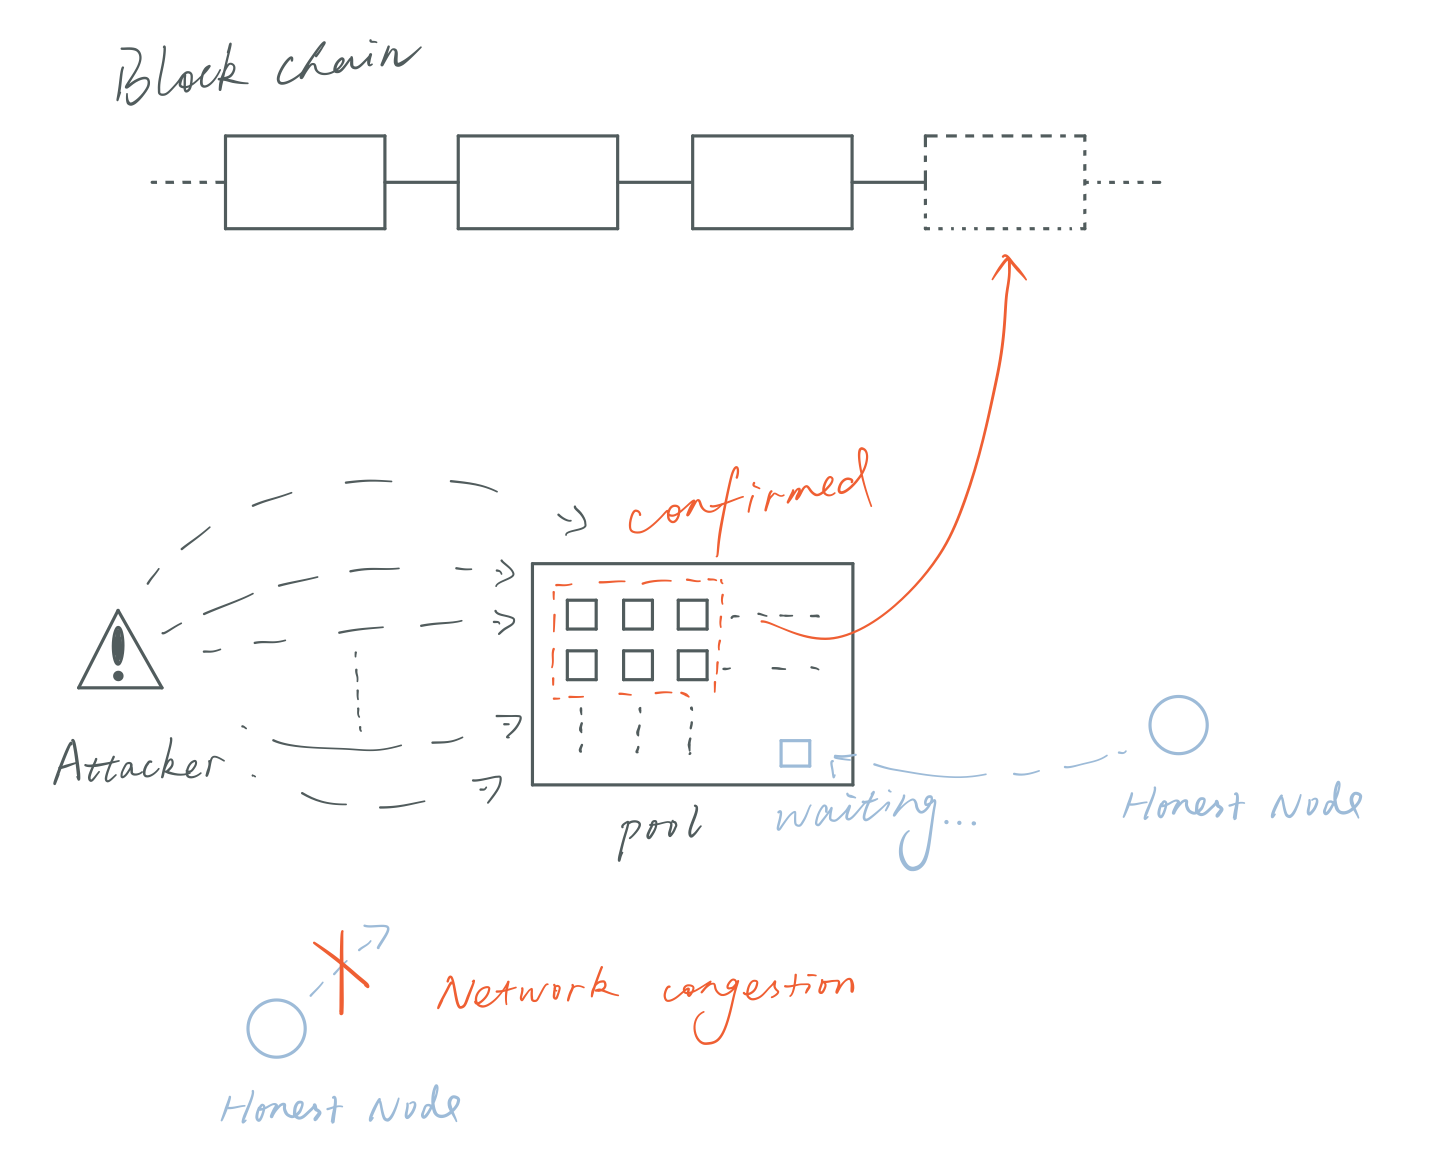 Block chain
confirmed
Attacker
pool
waiting...
Honest Node
Network congestion
Honest Node